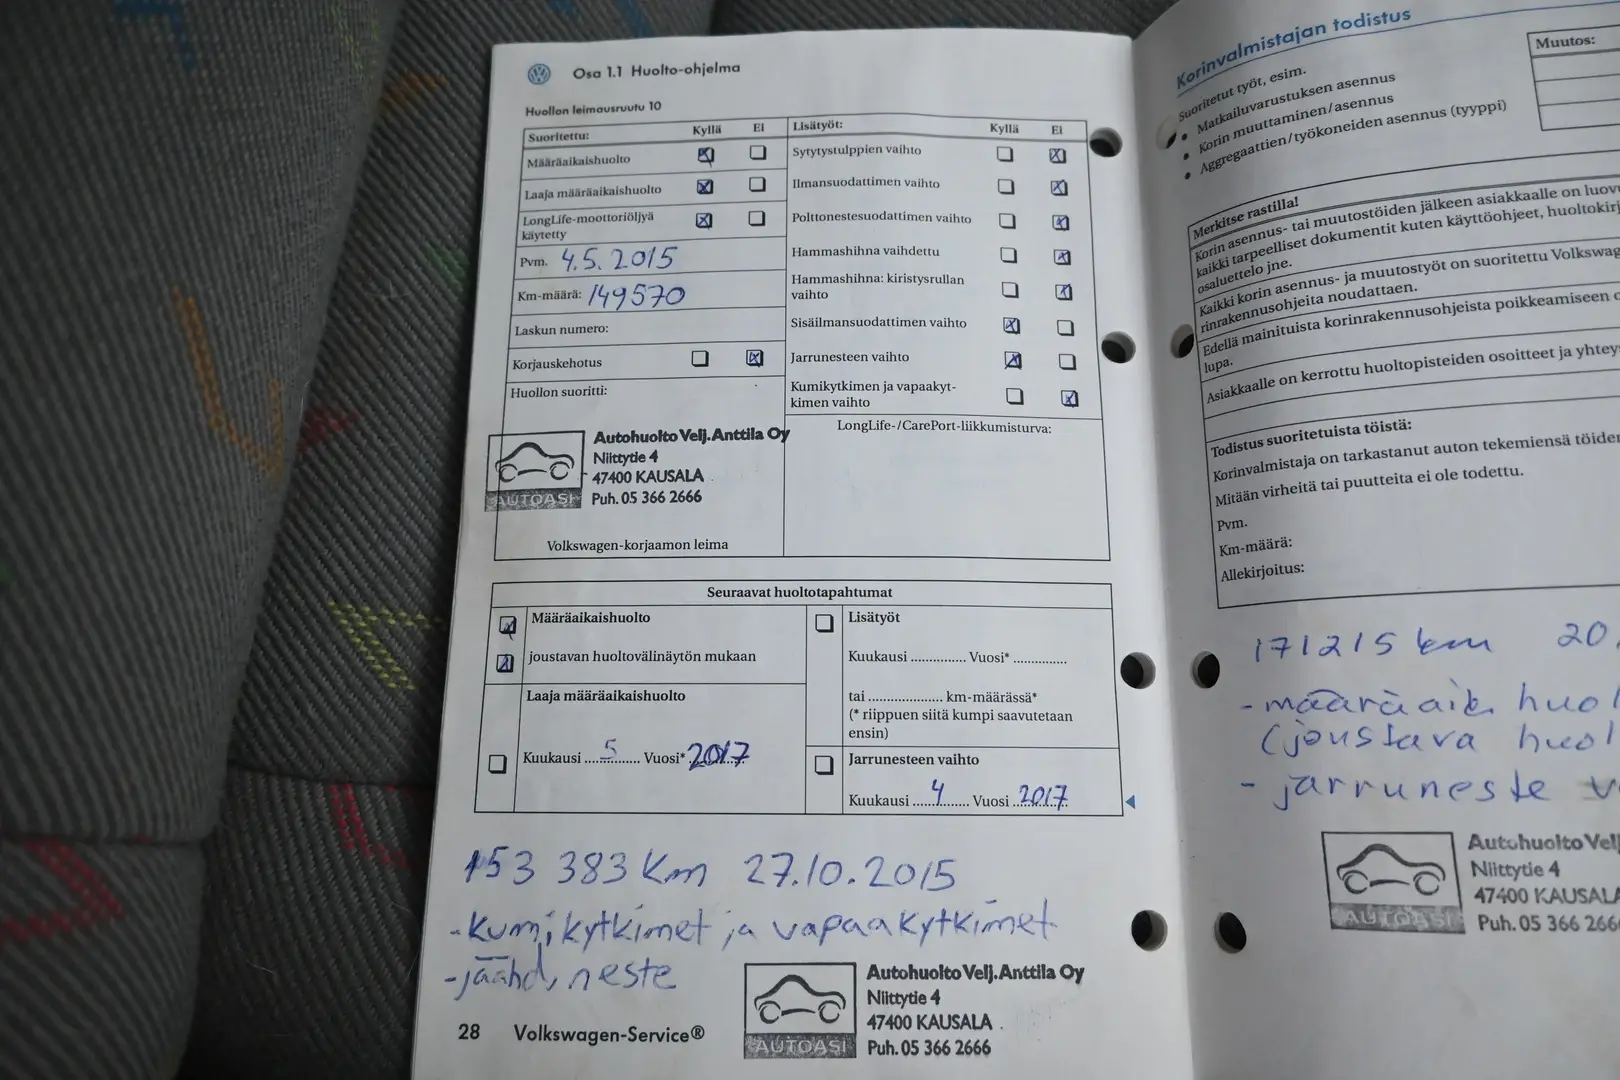 Osa 1.1 Huolto-ohjelma
Huollon leimausruutu 10
Suoritettu: Kyllä Ei
Määräaikaishuolto
Laaja määräaikaishuolto
LongLife-moottoriöljyä
käytetty
Pvm. 4.5.2015
Km-määrä: 149570
Laskun numero:
Korjauskehotus
Huollon suoritti:
Autohuolto Velj.Anttila Oy
Niittytie 4
47400 KAUSALA
Puh. 05 366 2666
AUTOASI
Volkswagen-korjaamon leima
Lisätyöt: Kyllä Ei
Sytytystulppien vaihto
Ilmansuodattimen vaihto
Polttonestesuodattimen vaihto
Hammashihna vaihdettu
Hammashihna: kiristysrullan
vaihto
Sisäilmansuodattimen vaihto
Jarrunesteen vaihto
Kumikytkimen ja vapaakyt-
kimen vaihto
LongLife-/CarePort-liikkumisturva:
Seuraavat huoltotapahtumat
Määräaikaishuolto
joustavan huoltovälinäytön mukaan
Laaja määräaikaishuolto
Kuukausi ....5.... Vuosi* 2017
Lisätyöt
Kuukasi .............. Vuosi* ..............
tai ................... km-määrässä*
(* riippuen siitä kumpi saavutetaan
ensin)
Jarrunesteen vaihto
Kuukausi ....4.... Vuosi 2017
153 383 Km 27.10.2015
-kumikytkimet ja vapaakytkimet
-jäähd, neste
Autohuolto Velj.Anttila Oy
Niittytie 4
47400 KAUSALA
Puh. 05 366 2666
AUTOASI
28 Volkswagen-Service®
Korinvalmistajan todistus
Suoritetut työt, esim.
• Matkailuvarustuksen asennus
• Korin muuttaminen/asennus
• Aggregaattien/työkoneiden asennus (tyyppi)
Muutos:
Merkitse rastilla!
Korin asennus- tai muutostöiden jälkeen asiakkaalle on
kaikki tarpeelliset dokumentit kuten käyttöohjeet,
osaluettelo jne.
Kaikki korin asennus- ja muutostyöt on suoritettu
rinrakennusohjeita noudattaen.
Edellä mainituista korinrakennusohjeista poikkeamiseen
lupa.
Asiakkaalle on kerrottu huoltopisteiden osoitteet ja
Todistus suoritetuista töistä:
Korinvalmistaja on tarkastanut auton tekemiensä
Mitään virheitä tai puutteita ei ole todettu.
Pvm.
Km-määrä:
Allekirjoitus:
171215 km 20.
-määräaik huol
(joustava huol
- jarruneste v
Autohuolto Velj
Niittytie 4
47400 KAUSALA
Puh. 05 366 266
AUTOASI